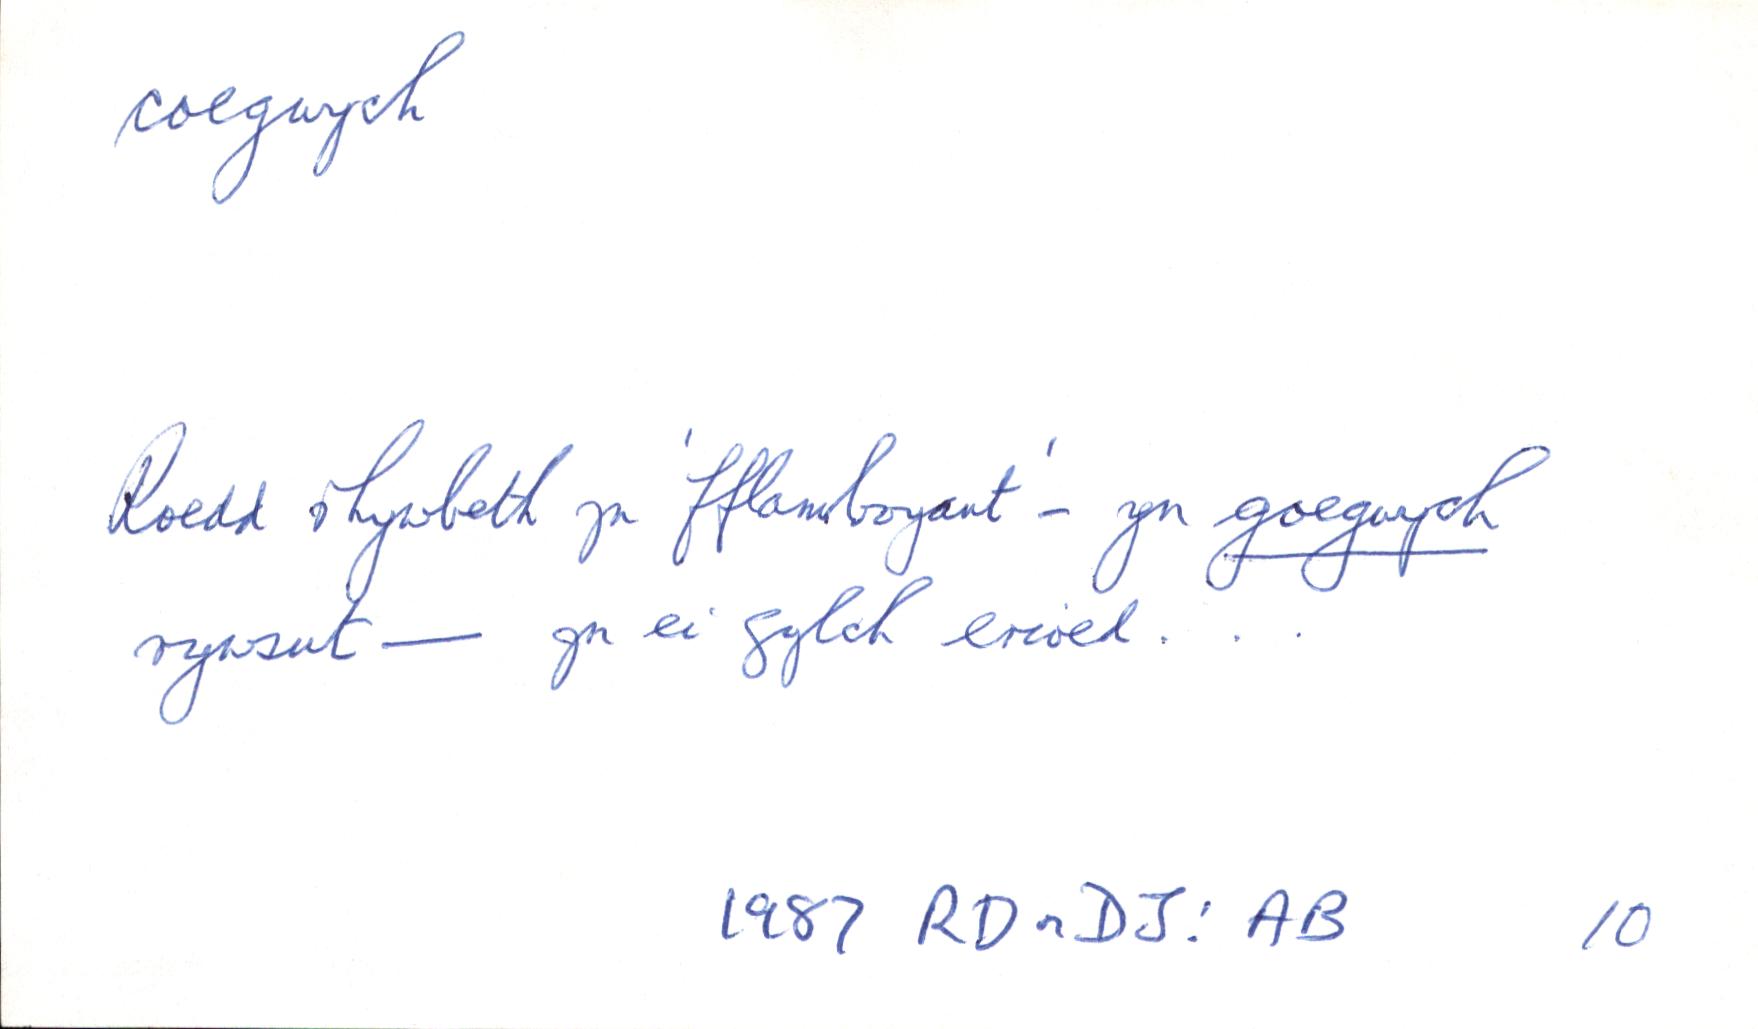 coegwych
Roedd rhywbeth yn 'fflamboyant' - yn goegwych
rywsut — yn ei gylch erioed. . .
1987 RDnDJ: AB 10